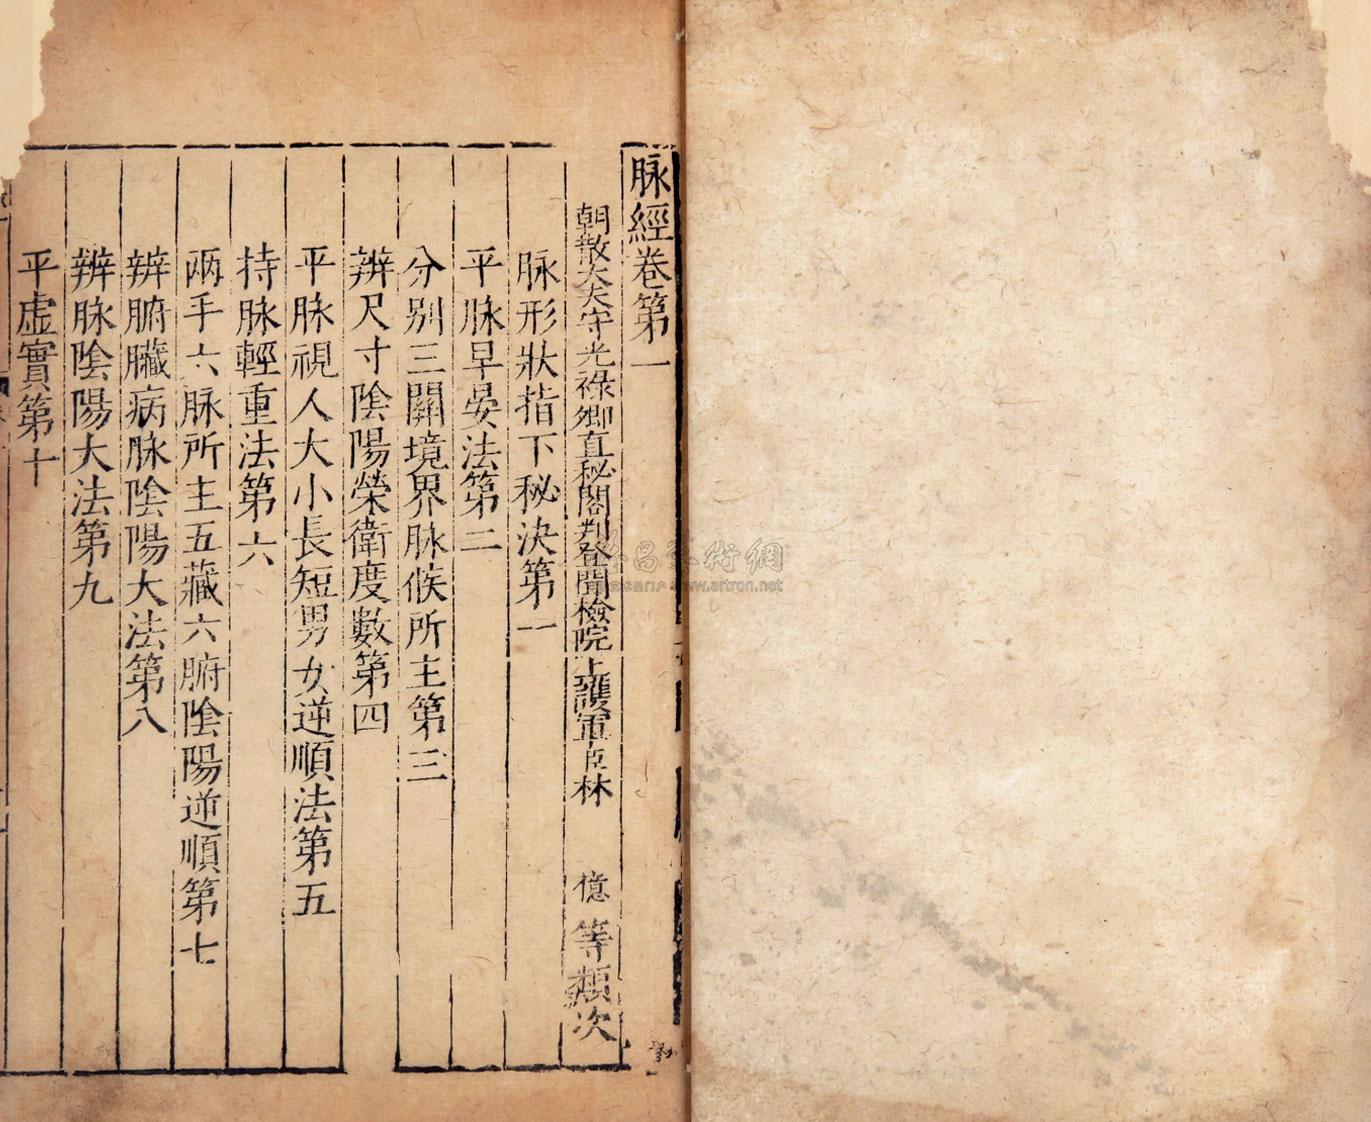 脉經卷第一
朝散大夫守光祿卿直秘閣判登聞檢院上護軍臣林億等類次
脉形狀指下秘決第一
平脉早晏法第二
分別三關境界脉候所主第三
辨尺寸陰陽榮衛度數第四
平脉視人大小長短男女逆順法第五
持脉輕重法第六
兩手六脉所主五藏六腑陰陽逆順第七
辨腑臟病脉陰陽大法第八
辨脉陰陽大法第九
平虛實第十
www.artron.net